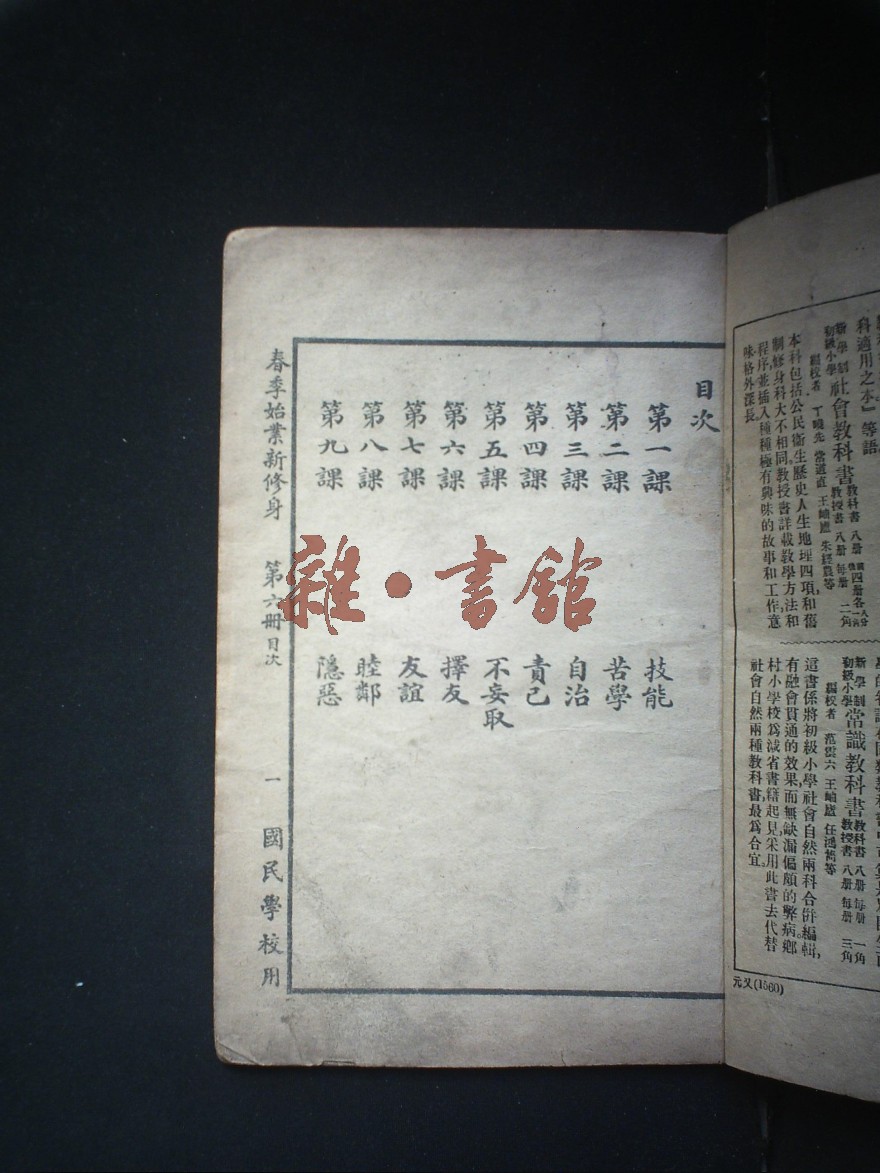 目次
第一課 技能
第二課 苦學
第三課 自治
第四課 責己
第五課 不妄取
第六課 擇友
第七課 友誼
第八課 睦鄰
第九課 隱惡
春季始業新修身 第六冊 目次 一 國民學校用
雜·書館
科適用之本』等語
新學制初級小學 社會教科書 教科書 八册 教授書 八册 每册 二角
編校者 丁曉先 常道直 王岫廬 朱經農等
本科包括公民衞生歷史人生地理四項,和舊
制修身科大不相同教授書詳載教學方法和
程序並插入種種極有興味的故事和工作,意
味格外深長
新學制初級小學 常識教科書 教科書 八册 每册 一角 教授書 八册 每册 三角
編校者 范雲六 王岫廬 任鴻雋等
這書係將初級小學社會自然兩科合併編輯,
有融會貫通的效果,而無缺漏偏頗的弊病,鄉
村小學校爲減省書籍起見,采用此書去代替
社會自然兩種教科書,最爲合宜。
元又(1560)